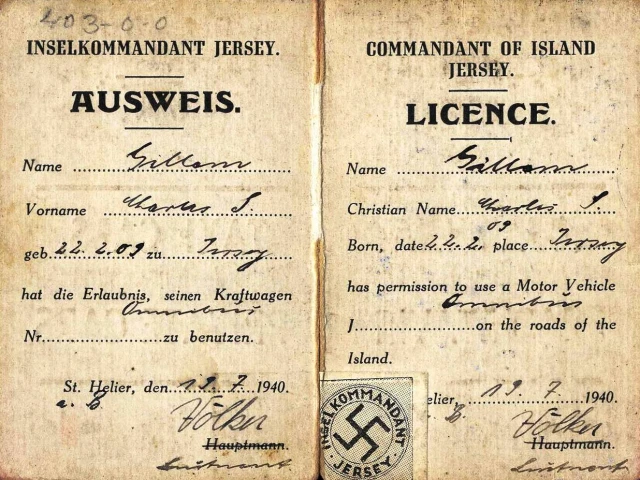 403-0-0
INSELKOMMANDANT JERSEY.
AUSWEIS.
Name Gillam
Vorname Charles S.
geb. 22.2.09 zu Jersey
hat die Erlaubnis, seinen Kraftwagen
Omnibus
Nr. zu benutzen.
St. Helier, den 19.7.1940.
Völker
Hauptmann.
Leutnant
COMMANDANT OF ISLAND
JERSEY.
LICENCE.
Name Gillam
Christian Name Charles S.
09
Born, date 22.2. place Jersey
has permission to use a Motor Vehicle
Omnibus
J. on the roads of the
Island.
elier, 19.7 1940.
Völker
Hauptmann.
Leutnant
INSELKOMMANDANT
· JERSEY ·